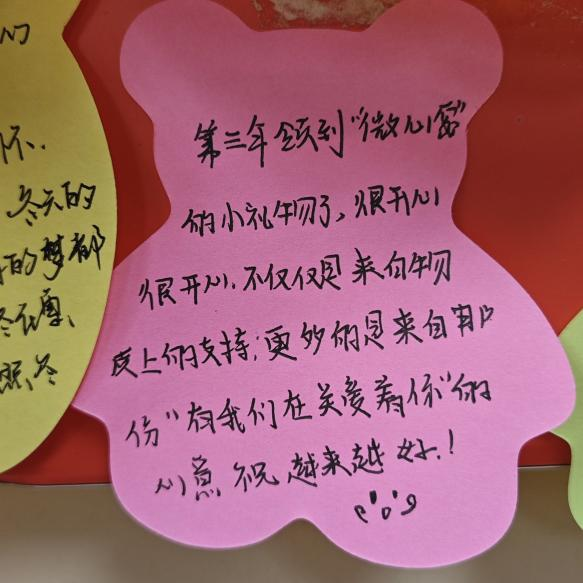 们
怀.
冬天的
的梦都
第三年领到“微心愿”
的小礼物了，很开心
很开心.不仅仅是来自物
质上的支持；更多的是来自那
份“有我们在关爱着你”的
心意 祝 越来越好.！